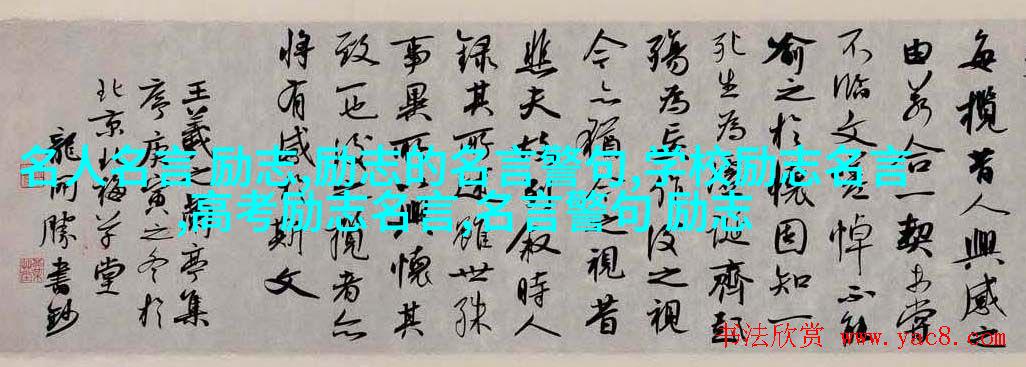 每攬昔人興感之
由若合一契未嘗
不臨文嗟悼不能
喻之於懷固知一
死生為虛誕齊彭
殤為妄作後之視
今亦猶今之視昔
悲夫故列叙時人
錄其所述雖世殊
事異所以興懷其
致一也後之攬者亦
將有感於斯文
王羲之蘭亭集
序庚寅之冬於
北京草堂
龍開勝書鈔
名人名言 励志,励志的名言警句,学校励志名言
,高考励志名言,名言警句 励志
书法欣赏 www.yac8.com